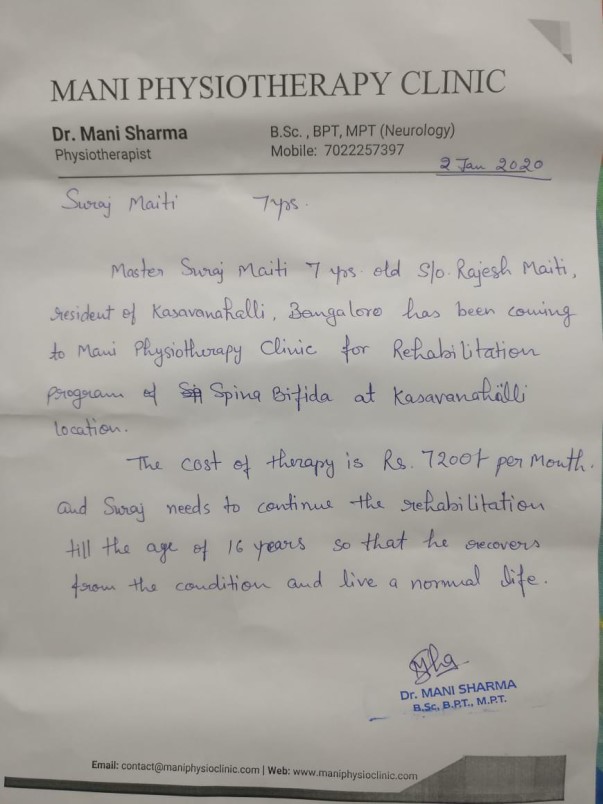 MANI PHYSIOTHERAPY CLINIC
Dr. Mani Sharma
Physiotherapist
B.Sc. , BPT, MPT (Neurology)
Mobile: 7022257397
2 Jan 2020
Suraj Maiti 7 yrs.
Master Suraj Maiti 7 yrs old S/o. Rajesh Maiti,
resident of Kasavanahalli, Bangalore has been coming
to Mani Physiotherapy Clinic for Rehabilitation
program of Spina Bifida at Kasavanahalli
location.
The cost of therapy is Rs. 7200/- per Month.
and Suraj needs to continue the rehabilitation
till the age of 16 years so that he recovers
from the condition and live a normal life.
Dr. MANI SHARMA
B.Sc, B.P.T., M.P.T.
Email: contact@maniphysioclinic.com | Web: www.maniphysioclinic.com